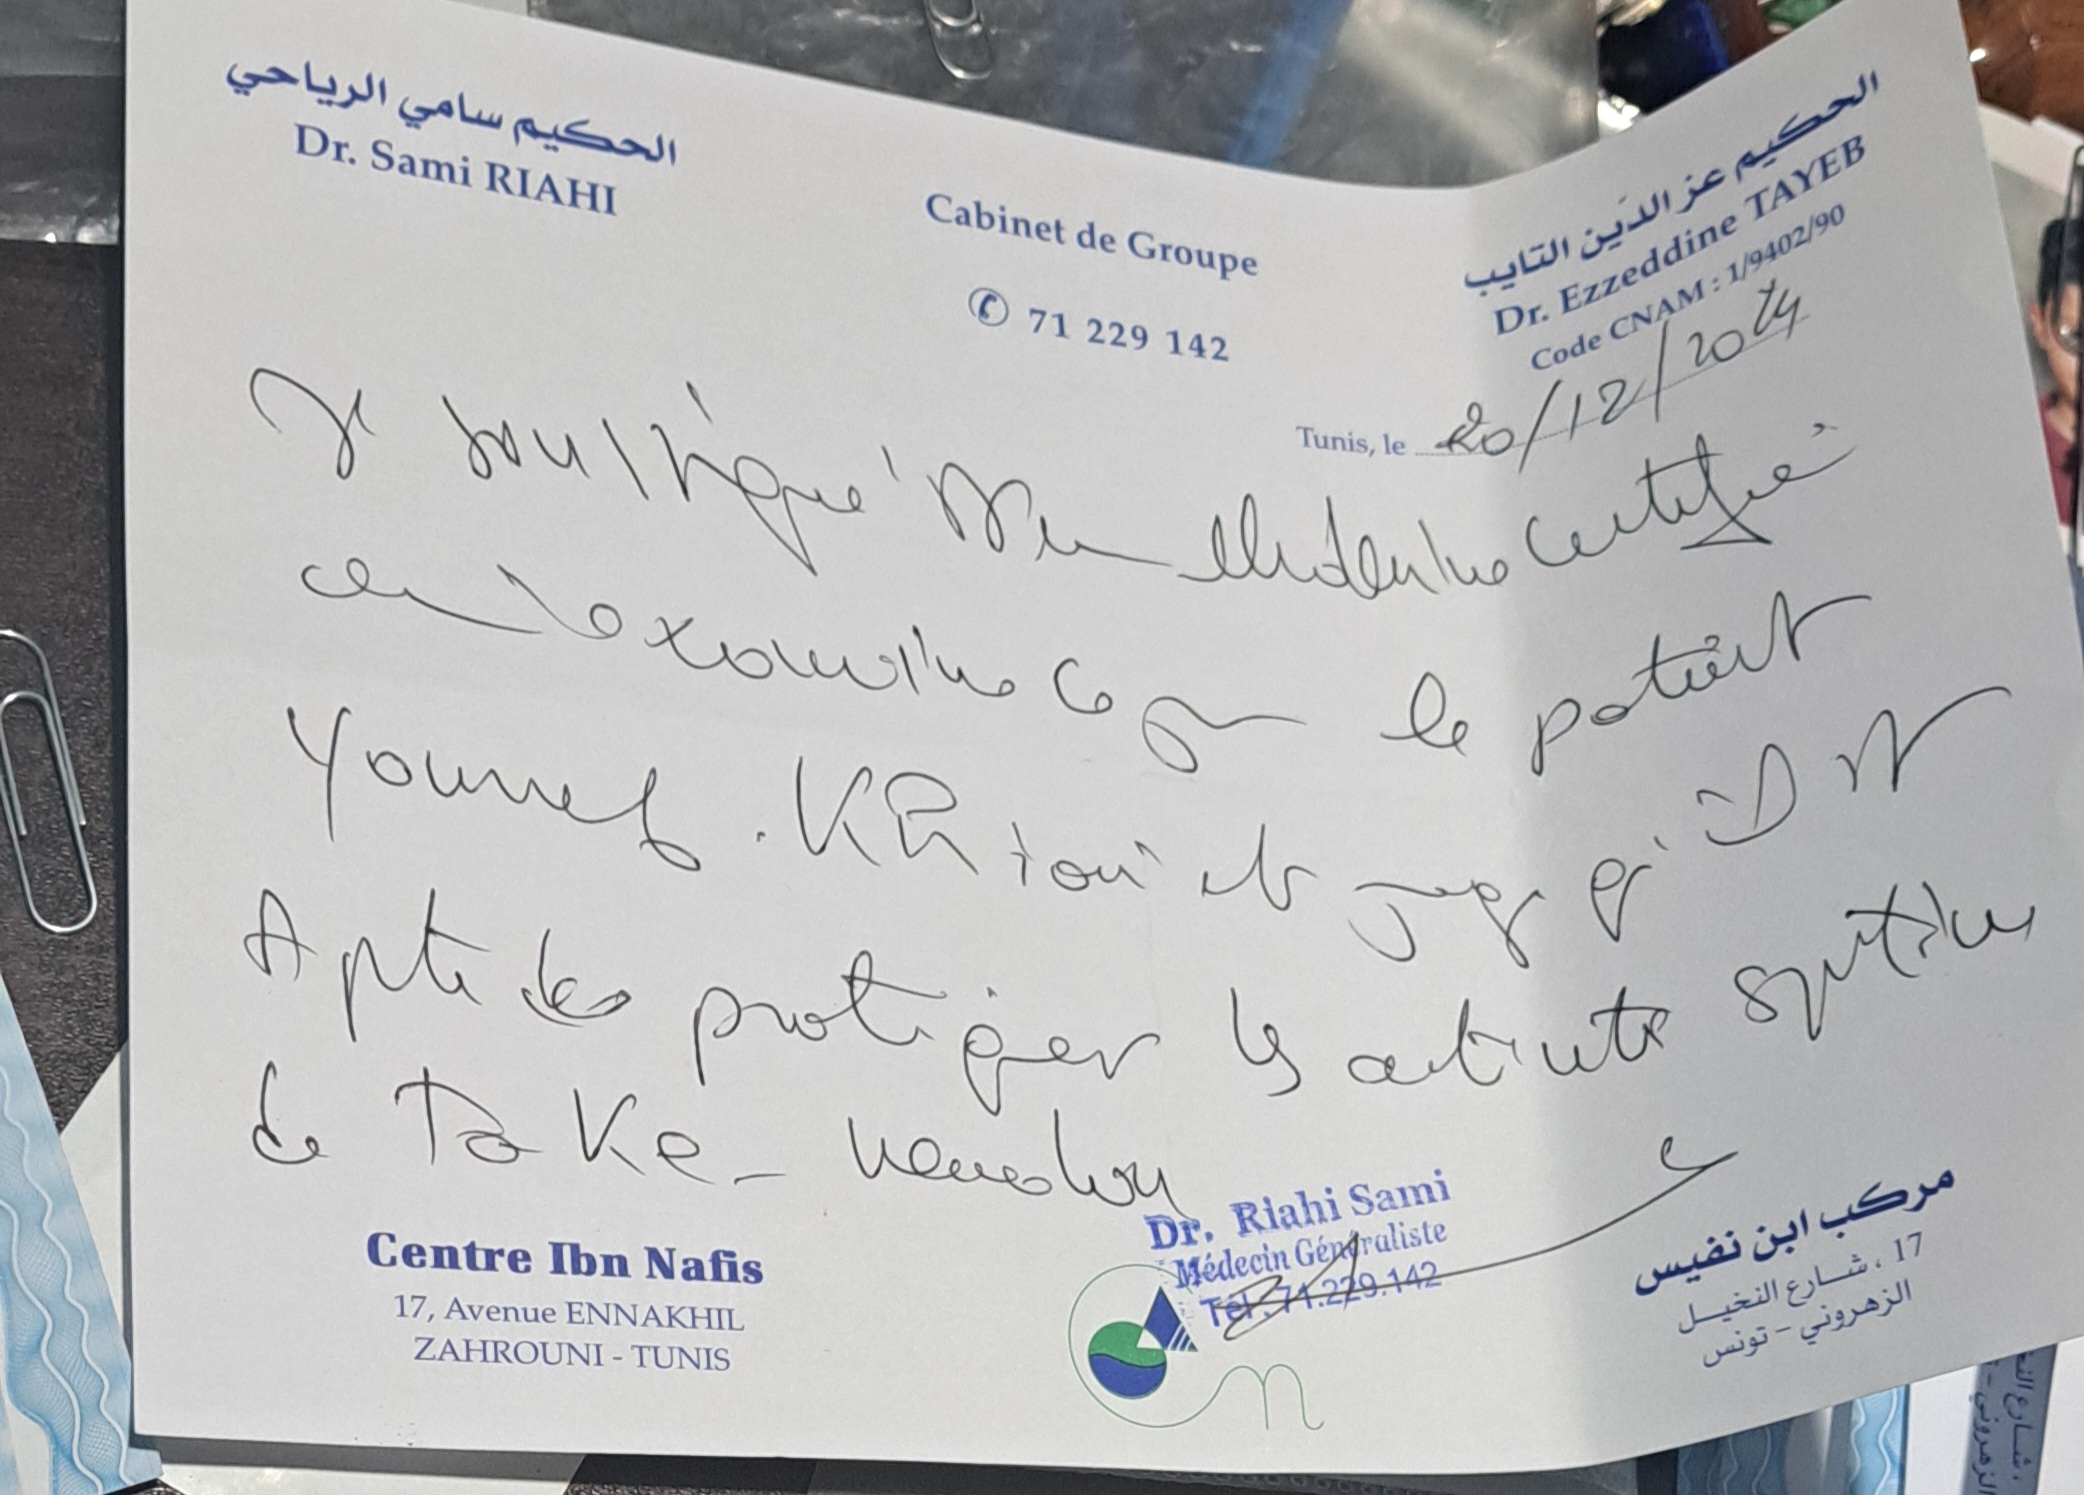 الحكيم سامي الرياحي
Dr. Sami RIAHI
Cabinet de Groupe
✆ 71 229 142
الحكيم عز الدّين التايب
Dr. Ezzeddine TAYEB
Code CNAM : 1/9402/90
Tunis, le 20/12/2024
Je soussigné Mr certifie
examiné ce jour le patient
Youssef . Khiari et juge qu'il est
Apte de pratiquer les activités sportives
de Take-
Dr. Riahi Sami
Médecin Généraliste
Tél : 71.229.142
Centre Ibn Nafis
17, Avenue ENNAKHIL
ZAHROUNI - TUNIS
مركب ابن نفيس
17 ، شــارع النخيــل
الزهروني - تونس